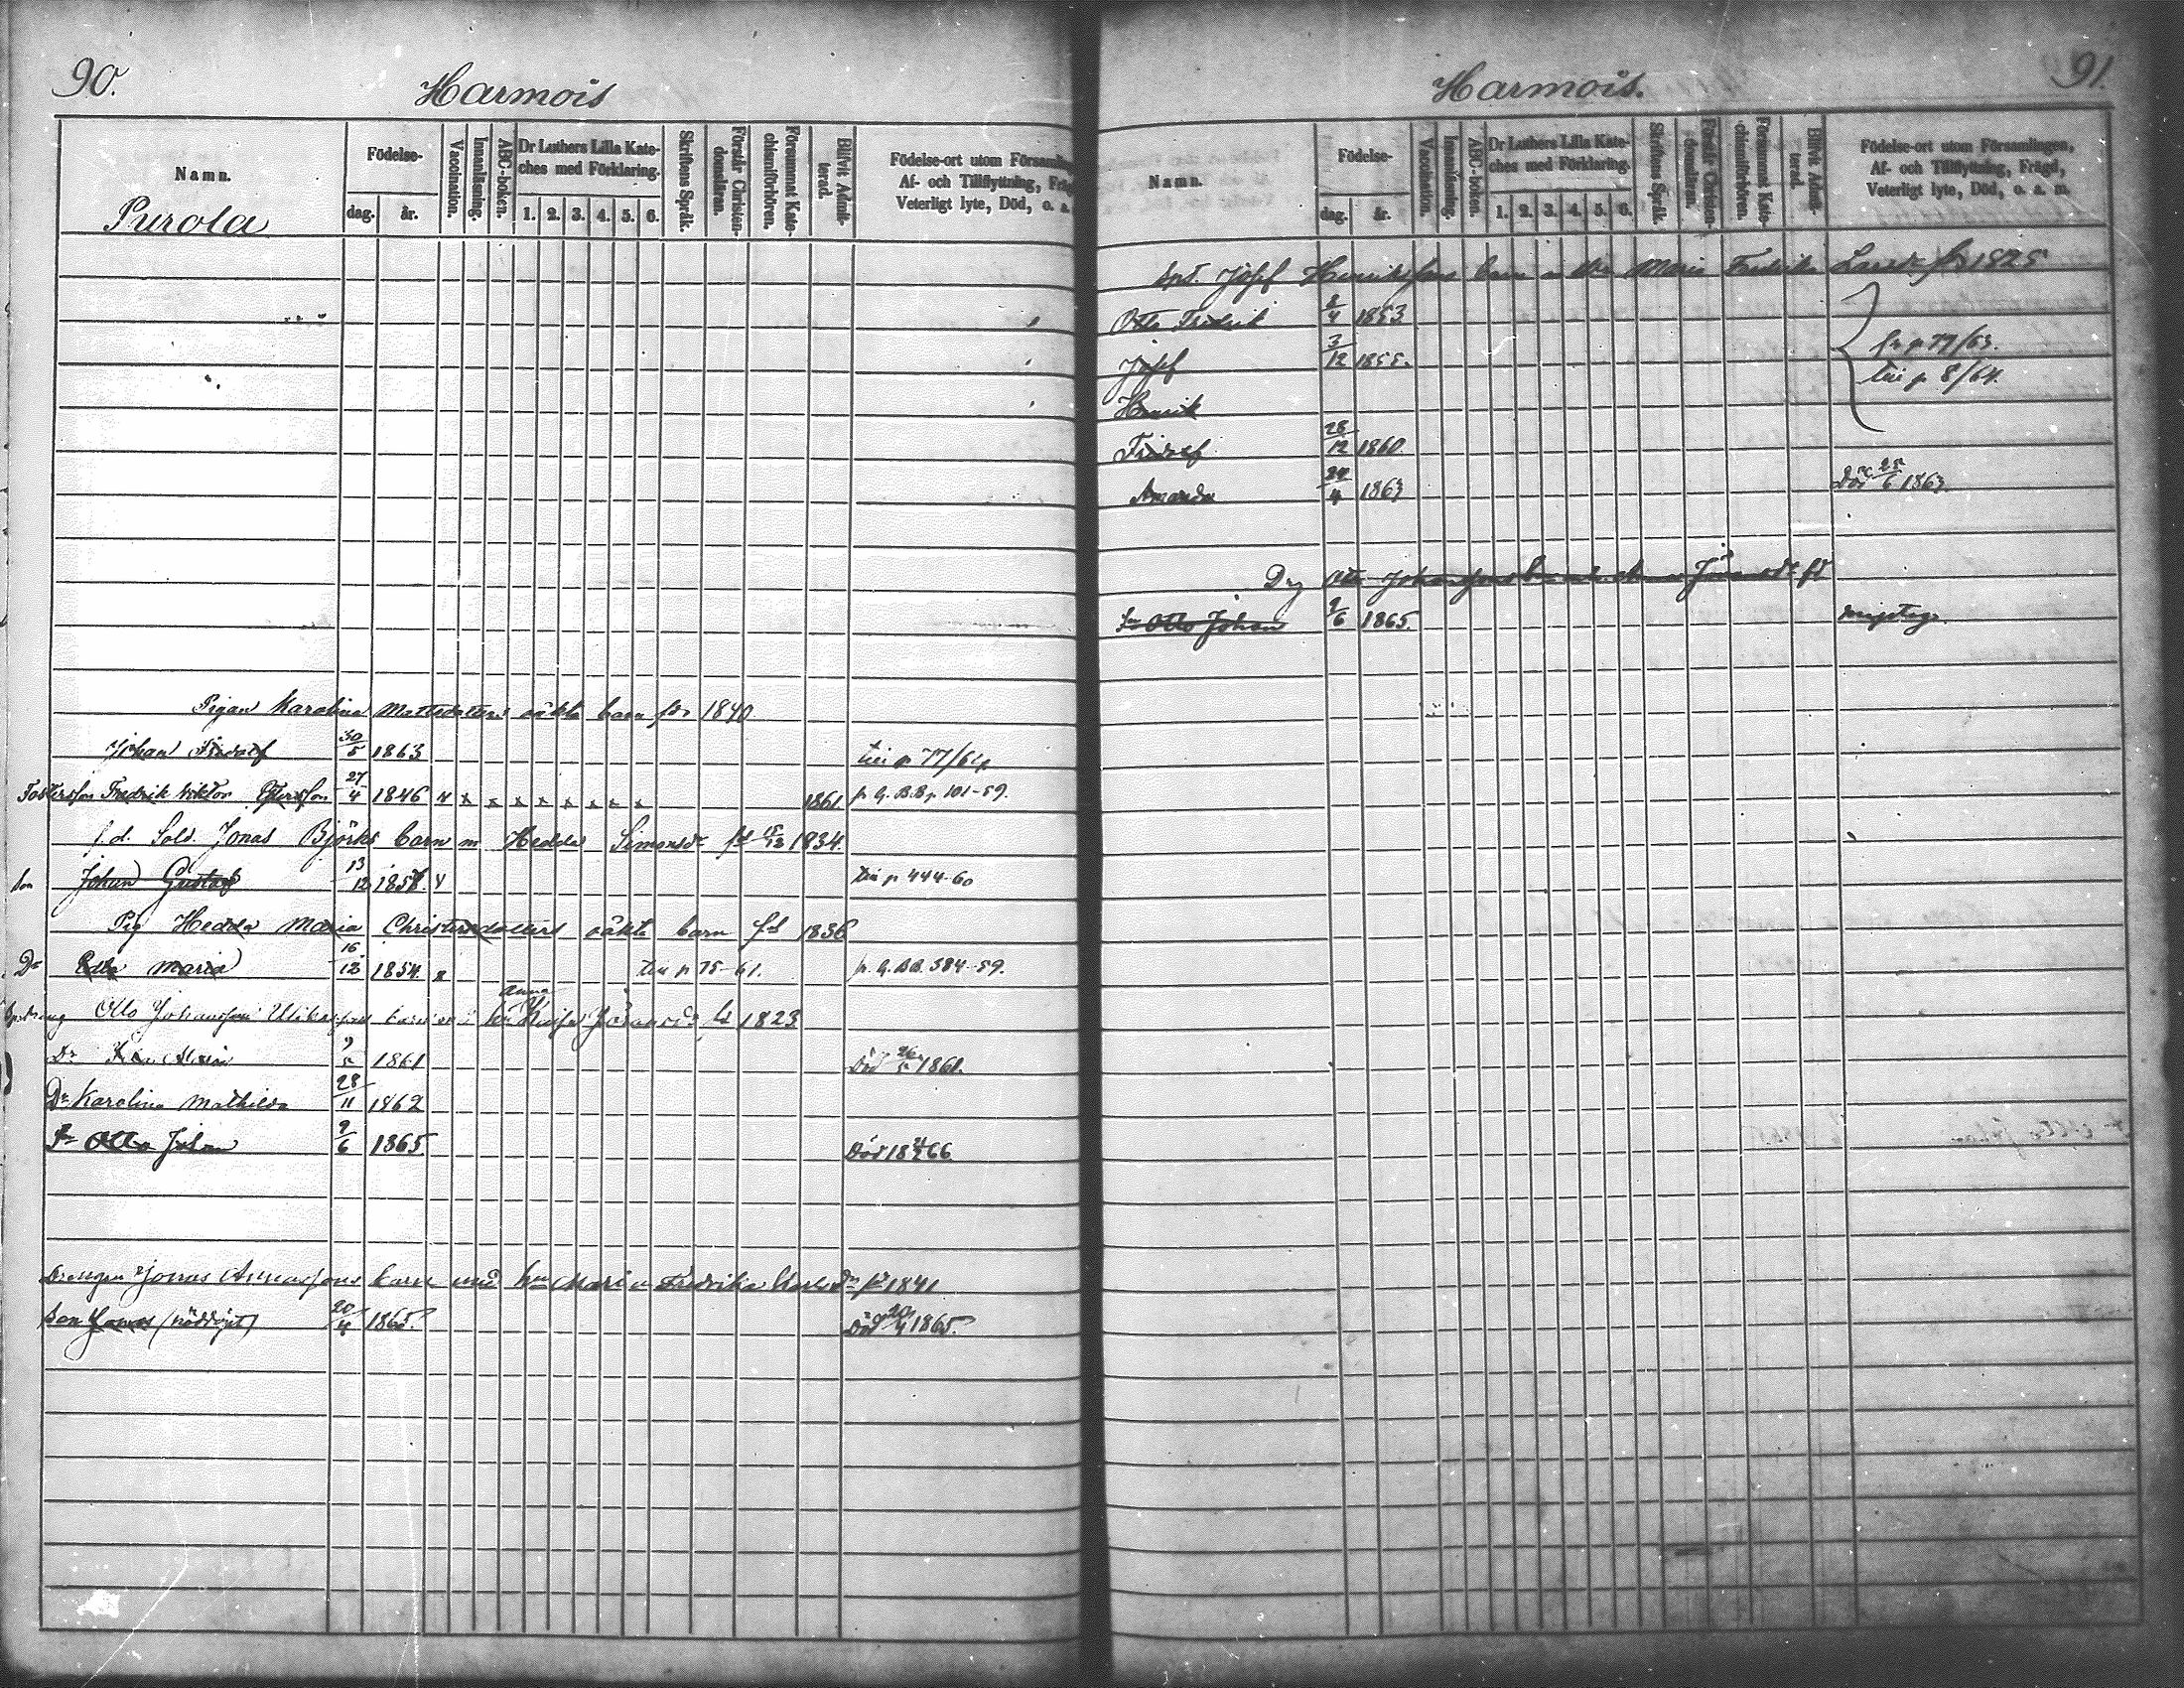 90.
Harmois
Namn.
Purola
Födelse-
dag.
år.
Vaccination.
Innanläsning.
ABC-boken.
Dr Luthers Lilla Kate-
ches med Förklaring.
1. 2. 3. 4. 5. 6.
Skriftens Språk.
Förstår Christen-
domsläran.
Försummat Kate-
chismiförhören.
Blifvit Admit-
terad.
Födelse-ort utom Församling
Af- och Tillflyttning, Fräg
Veterligt lyte, Död, o. a.
Pigan Karolina Mattsdotters oäkta barn fdr 1840
Johan Fridolf 30/5 1863 till p 77/64
Fostersson Fredrik Viktor 27/4 1846 x x x x x x x x x 1861 fr G.B.B p 101-59.
f.d. Sold. Jonas Björks barn m Hedda Simonsdr fd 15/12 1834.
Son Johan Gustaf 13/12 185 till p 444-60
Pig Hedda Maria Christersdotters oäkta barn fd 1836
Dr Edla Maria 16/12 1854 x till p 75-61. fr. G.B.B. 384-59.
Otto Johansson barn m h Anna Kaisa Göransdr fd 1823
Dr Maria 1861 Död 26/5 1861.
Dr Karolina Mathilda 28/11 1862
Sn Otto Johan 9/6 1865 Död 18 66
Drengen Jonas Annassons barn med hu Maria Fredrika Karlsdr fd 1841
Son Jonas (nöddöpt) 20/4 1865. Död 20/4 1865.
91.
Harmois.
Namn.
Födelse-
dag.
år.
Vaccination.
Innanläsning.
ABC-boken.
Dr Luthers Lilla Kate-
ches med Förklaring.
1. 2. 3. 4. 5. 6.
Skriftens Språk.
Förstår Christen-
domsläran.
Försummat Kate-
chismiförhören.
Blifvit Admit-
terad.
Födelse-ort utom Församlingen,
Af- och Tillflyttning, Frägd,
Veterligt lyte, Död, o. a. m.
Josef Henrikssons barn m Maria Fredrika Larsdr fdr 1825
Otto Fredrik 2/4 1853
Josef 3/12 1855. fr p 77/63.
till p 8/64.
Henrik
Fridolf 28/12 1860.
Amanda 24/4 1863 Död 25/6 1863.
Dr Otto Johanssons barn
Sn Otto Johan 9/6 1865.